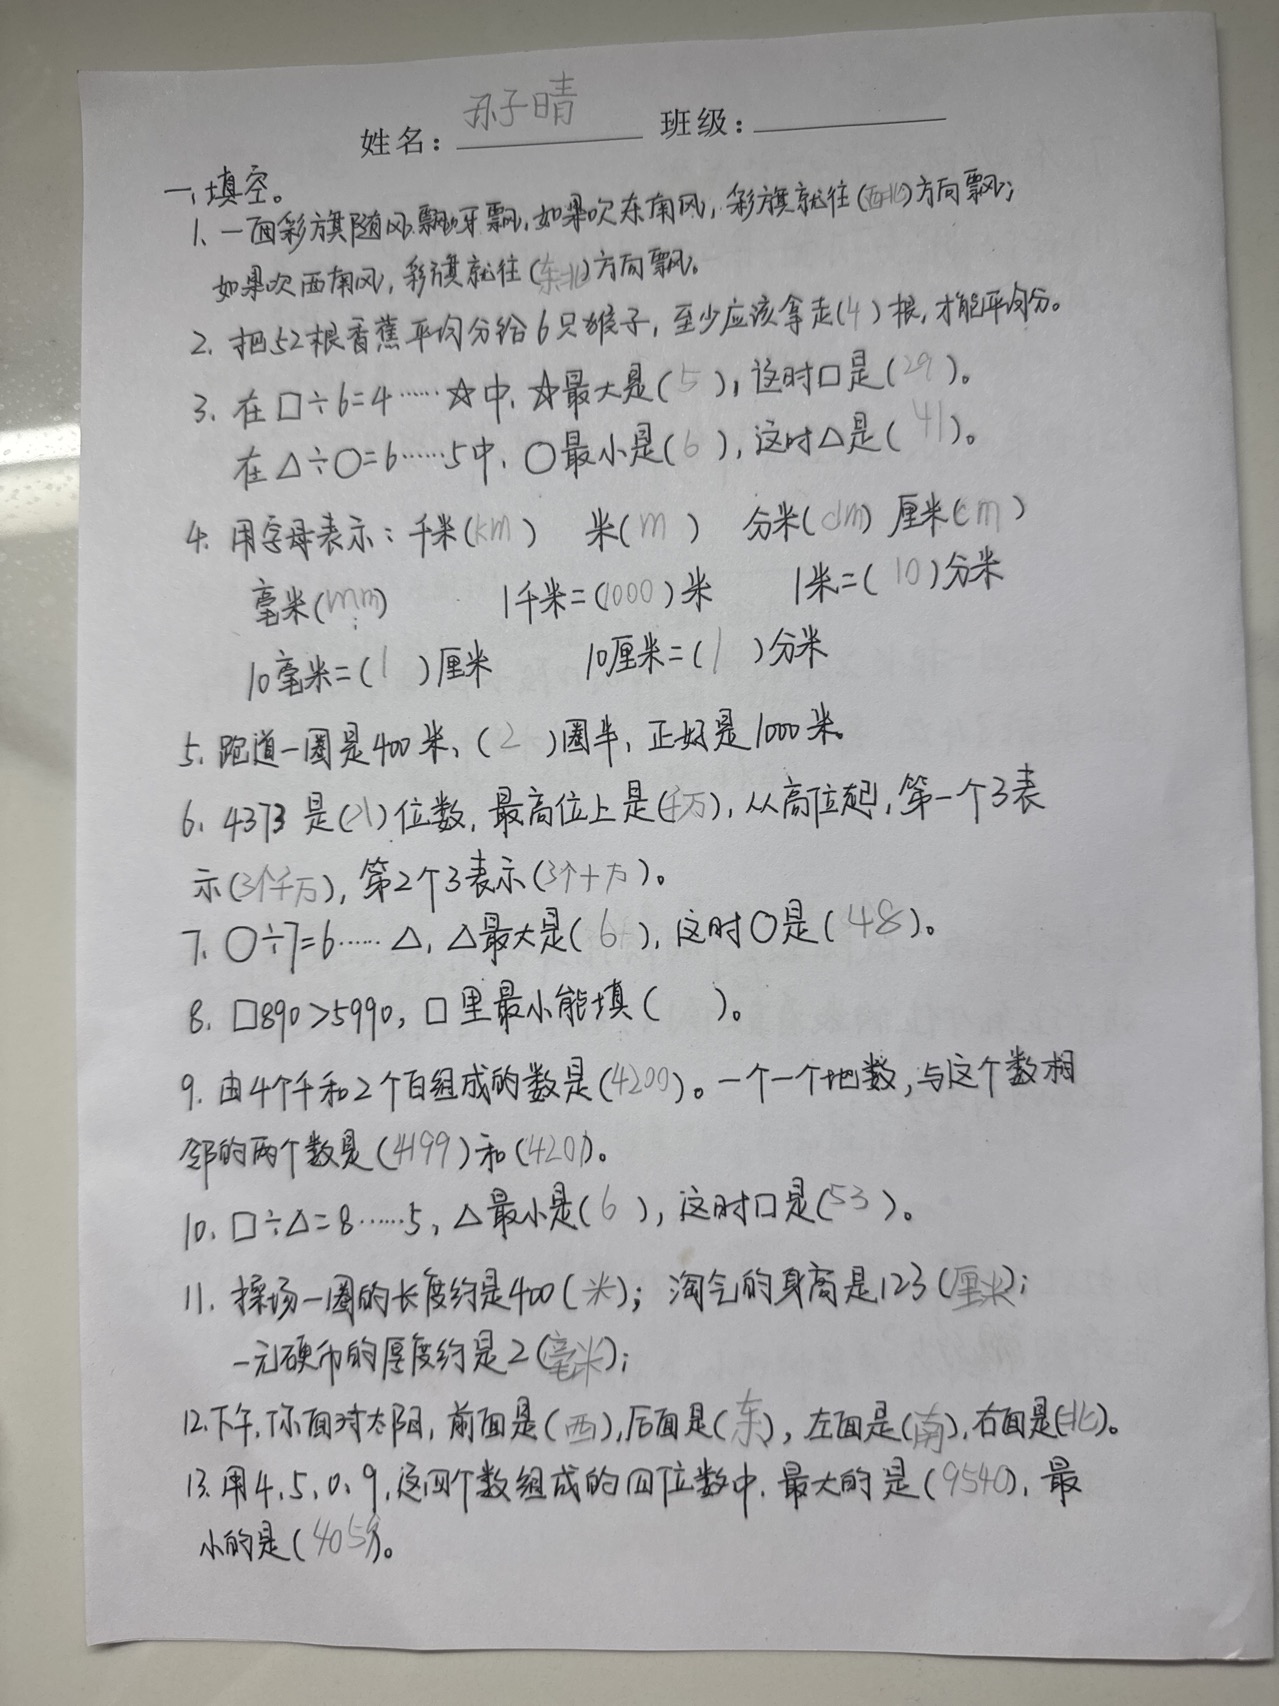 姓名：孙子晴 班级：
一、填空。
1、一面彩旗随风飘呀飘，如果吹东南风，彩旗就往(西北)方向飘；
如果吹西南风，彩旗就往(东北)方向飘。
2、把52根香蕉平均分给6只猴子，至少应该拿走(4)根，才能平均分。
3、在□÷6=4……☆中，☆最大是(5)，这时□是(29)。
在△÷○=6……5中，○最小是(6)，这时△是(41)。
4、用字母表示：千米(km) 米(m) 分米(dm) 厘米(cm)
毫米(mm) 1千米=(1000)米 1米=(10)分米
10毫米=(1)厘米 10厘米=(1)分米
5、跑道一圈是400米，(2)圈半，正好是1000米。
6、4373是()位数，最高位上是(千万)，从高位起，第一个3表
示(3个千万)，第2个3表示(3个十万)。
7、○÷7=6……△，△最大是(6)，这时○是(48)。
8、□890>5990，□里最小能填( )。
9、由4个千和2个百组成的数是(4200)。一个一个地数，与这个数相
邻的两个数是(4199)和(4201)。
10、□÷△=8……5，△最小是(6)，这时□是(53)。
11、操场一圈的长度约是400(米)；淘气的身高是123(厘米)；
一元硬币的厚度约是2(毫米)；
12、下午，你面对太阳，前面是(西)，后面是(东)，左面是(南)，右面是(北)。
13、用4、5、0、9，这四个数组成的四位数中，最大的是(9540)，最
小的是(4059)。